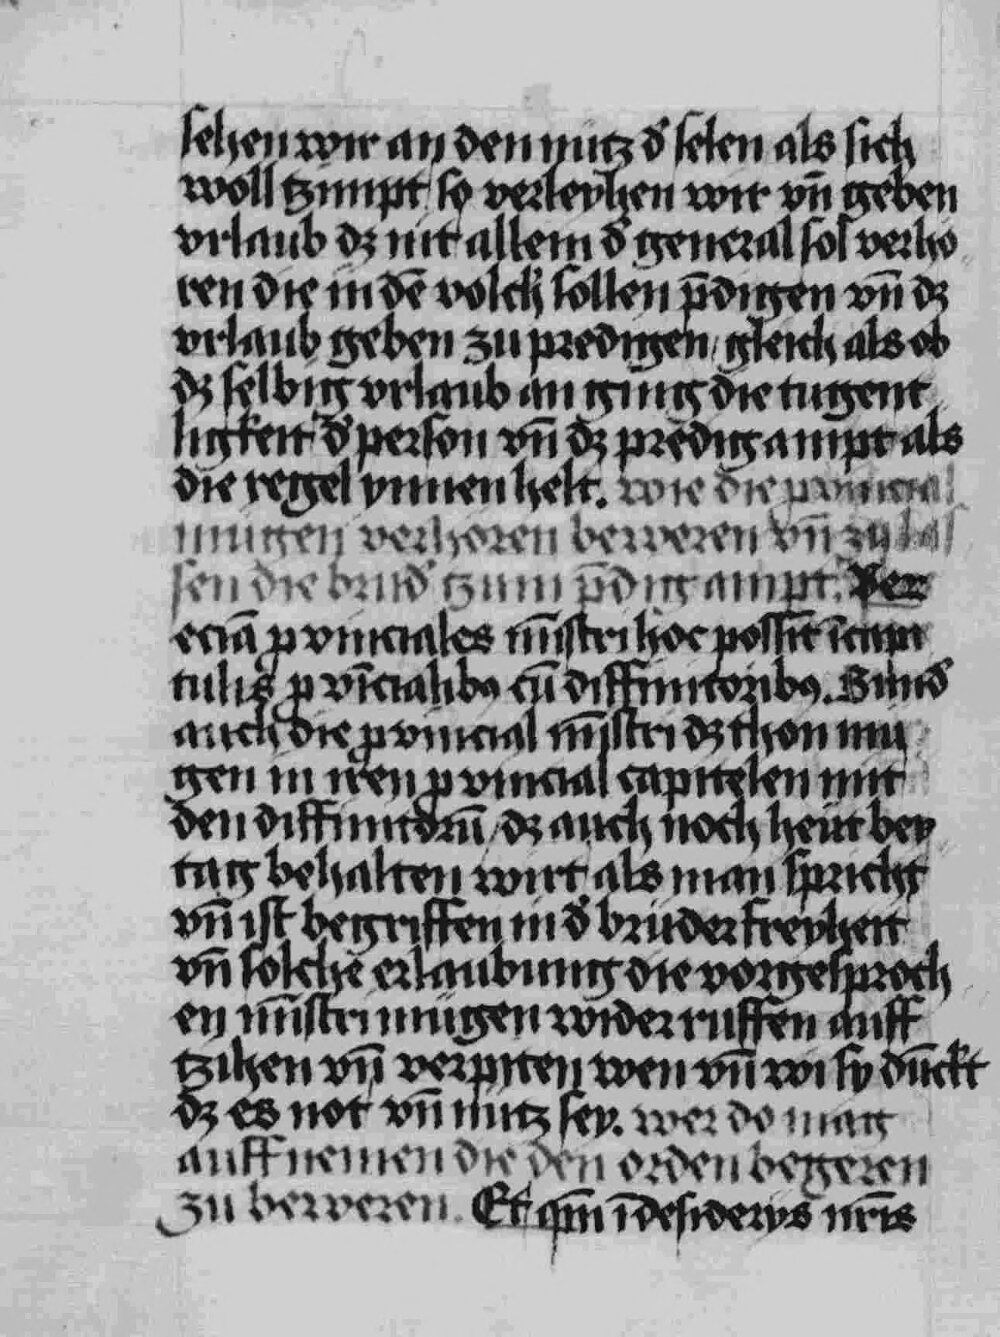 sehen wir an den nutz d̕ selen als sich
woll tzimpt / so verleyhen wir vn̄ geben
vrlaub dz nit allein d̕ general sol verho
ren die in dē volck sollen p̄digen vn̄ dz
vrlaub geben zu predigen / gleich als ob
dz selbig vrlaub an ging die tugent
ligkeit d̕ person vn̄ dz predig ampt als
die regel ynnen helt. wie die ꝓuincial
mügen verhören beweren vn̄ zu
sen die brud̕ tzum p̄dig ampt.
eciā ꝓvinciales mīstri hoc possīt ī capi
tulis ꝓvīcialibꝰ cū diffinitoribꝰ. Sund̕
auch die ꝓvincial mīstri dz thon mü
gen in iren ꝓvincial capitelen mit
den diffinitorū / dz auch noch heüt bey
tag behalten wirt als man spricht
vn̄ ist begriffen in d̕ brüder freyheit
vn̄ solche erlaubung die vorgesproch
en mīstri mügen widerruffen auff
tzihen vn̄ verpiten wen vn̄ wi sy dūckt
dz es not vn̄ nutz sey. wer do mag
auffnemen die den orden begeren
zu beweren. Et qm̄ ī desiderijs nr̄is